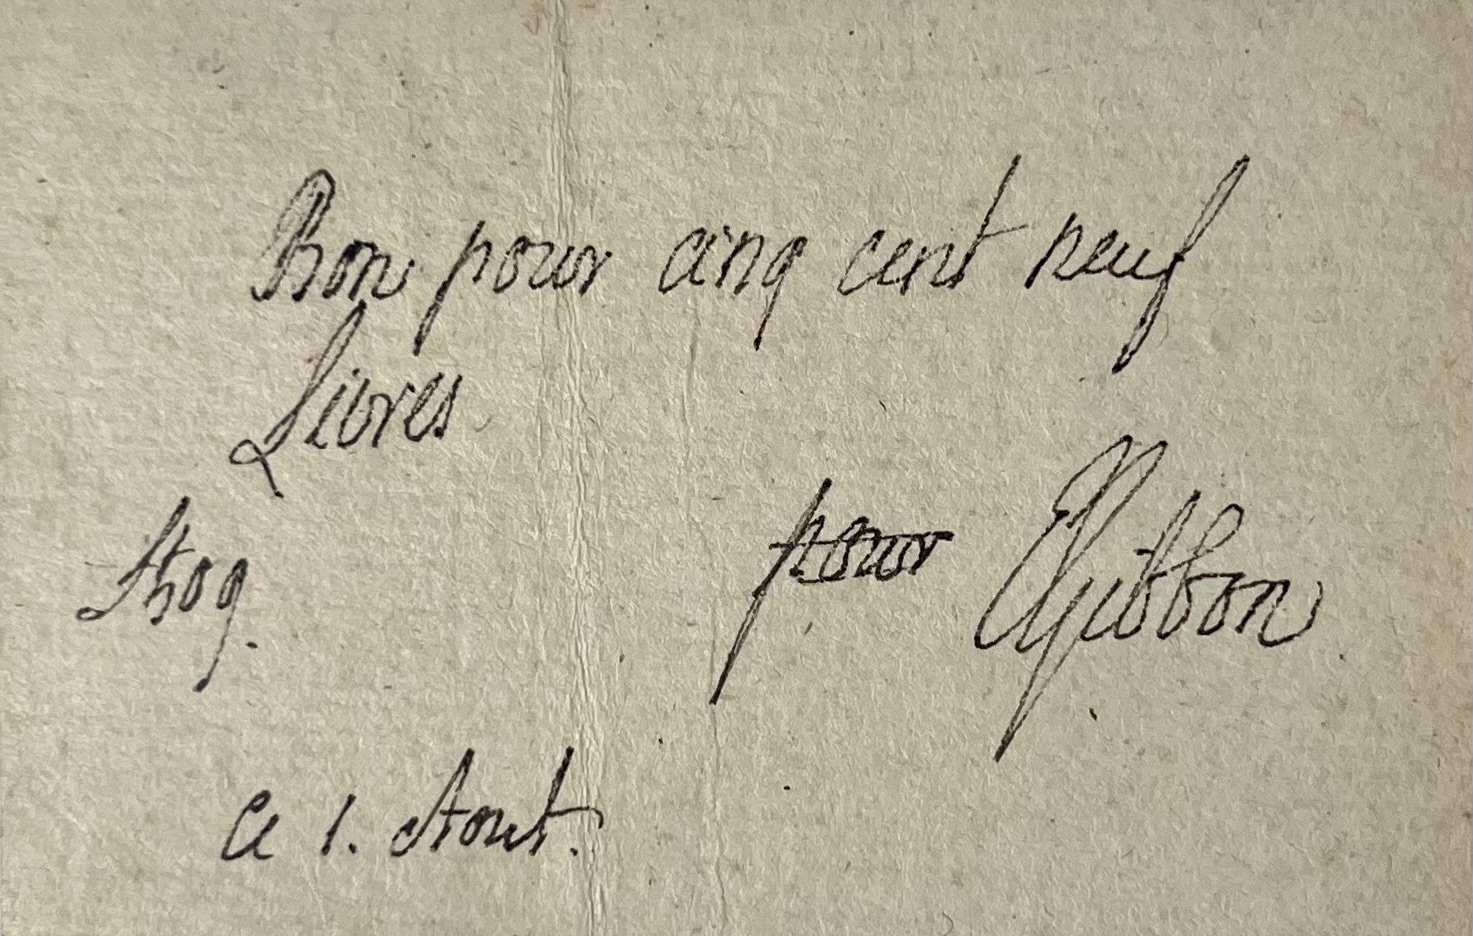 Bon pour cinq cent neuf
Livres
£509.
~~pour~~ EGibbon
ce 1. Aout.